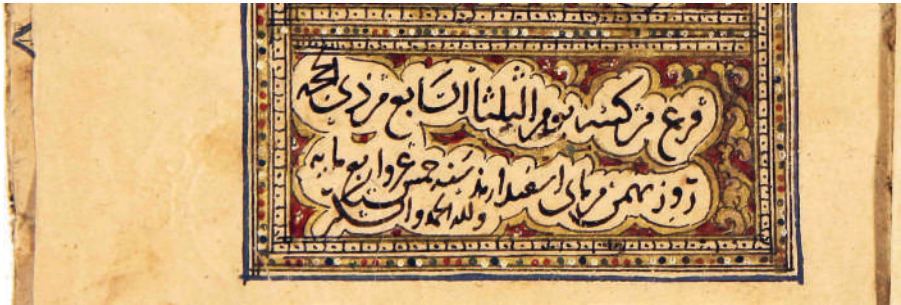 فرغ من كتبه يوم الثلثا السابع من ذي الحجه
روز بهمن من ماى اسفندارمذ سنه خمس واربع مايه
ولله الحمد